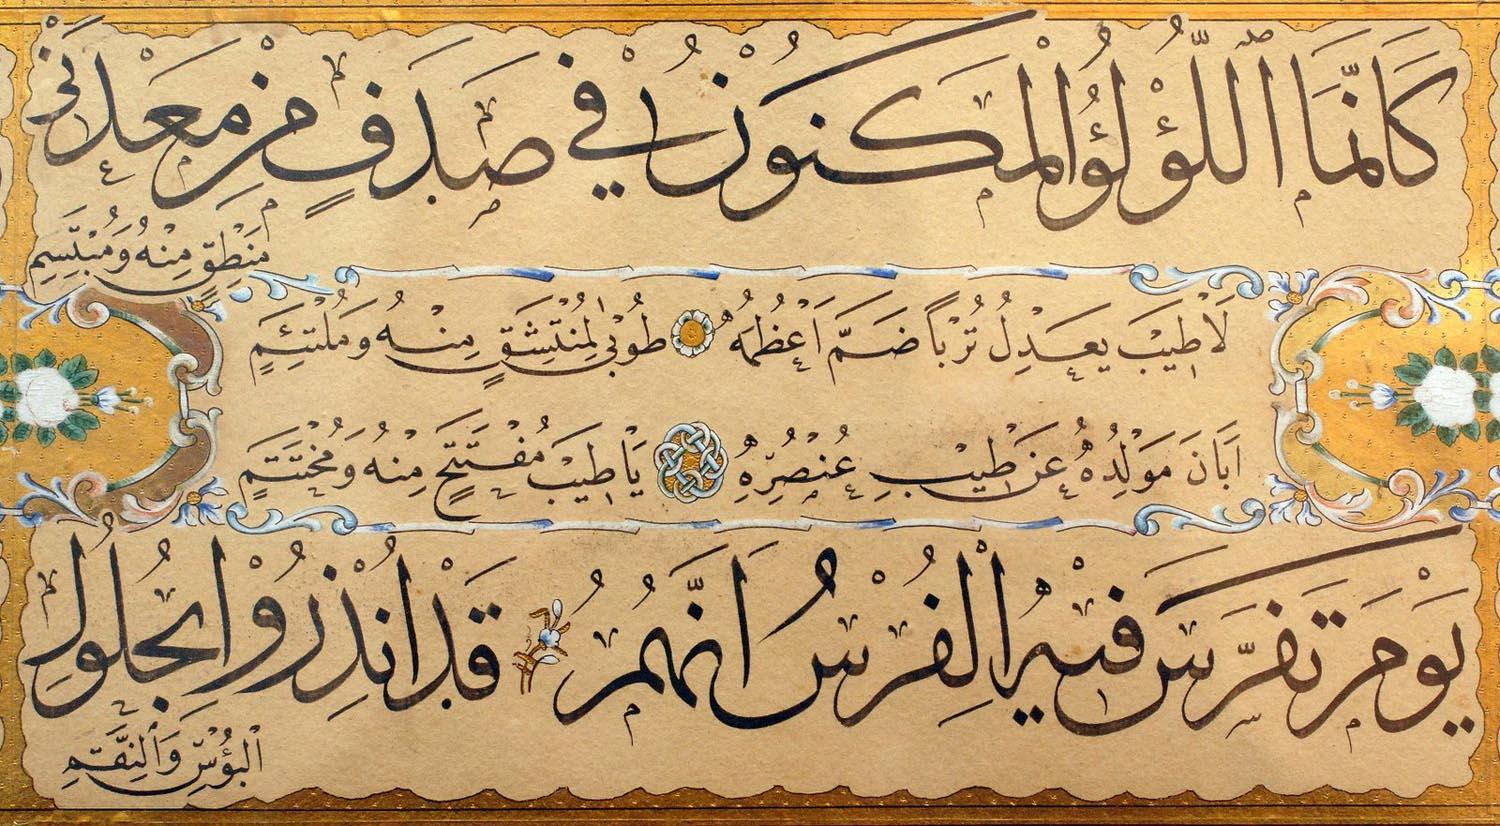 كَاَنَّمَا اللُّؤْلُؤُ الْمَكْنُونُ فِي صَدَفٍ مِنْ مَعْدِنَيْ
مَنْطِقٍ مِنْهُ وَمُبْتَسِمِ
لَا طِيبَ يَعْدِلُ تُرْبًا ضَمَّ اَعْظُمَهُ طُوبٰى لِمُنْتَشِقٍ مِنْهُ وَمُلْتَئِمٍ
اَبَانَ مَوْلِدُهُ عَنْ طِيبِ عُنْصُرِهِ يَا طِيبَ مُفْتَتَحٍ مِنْهُ وَمُخْتَتَمٍ
يَوْمَ تَفَرَّسَ فِيهِ الْفُرْسُ اَنَّهُمُ قَدْ اُنْذِرُوا بِحُلُولِ
الْبُؤْسِ وَالنِّقَمِ